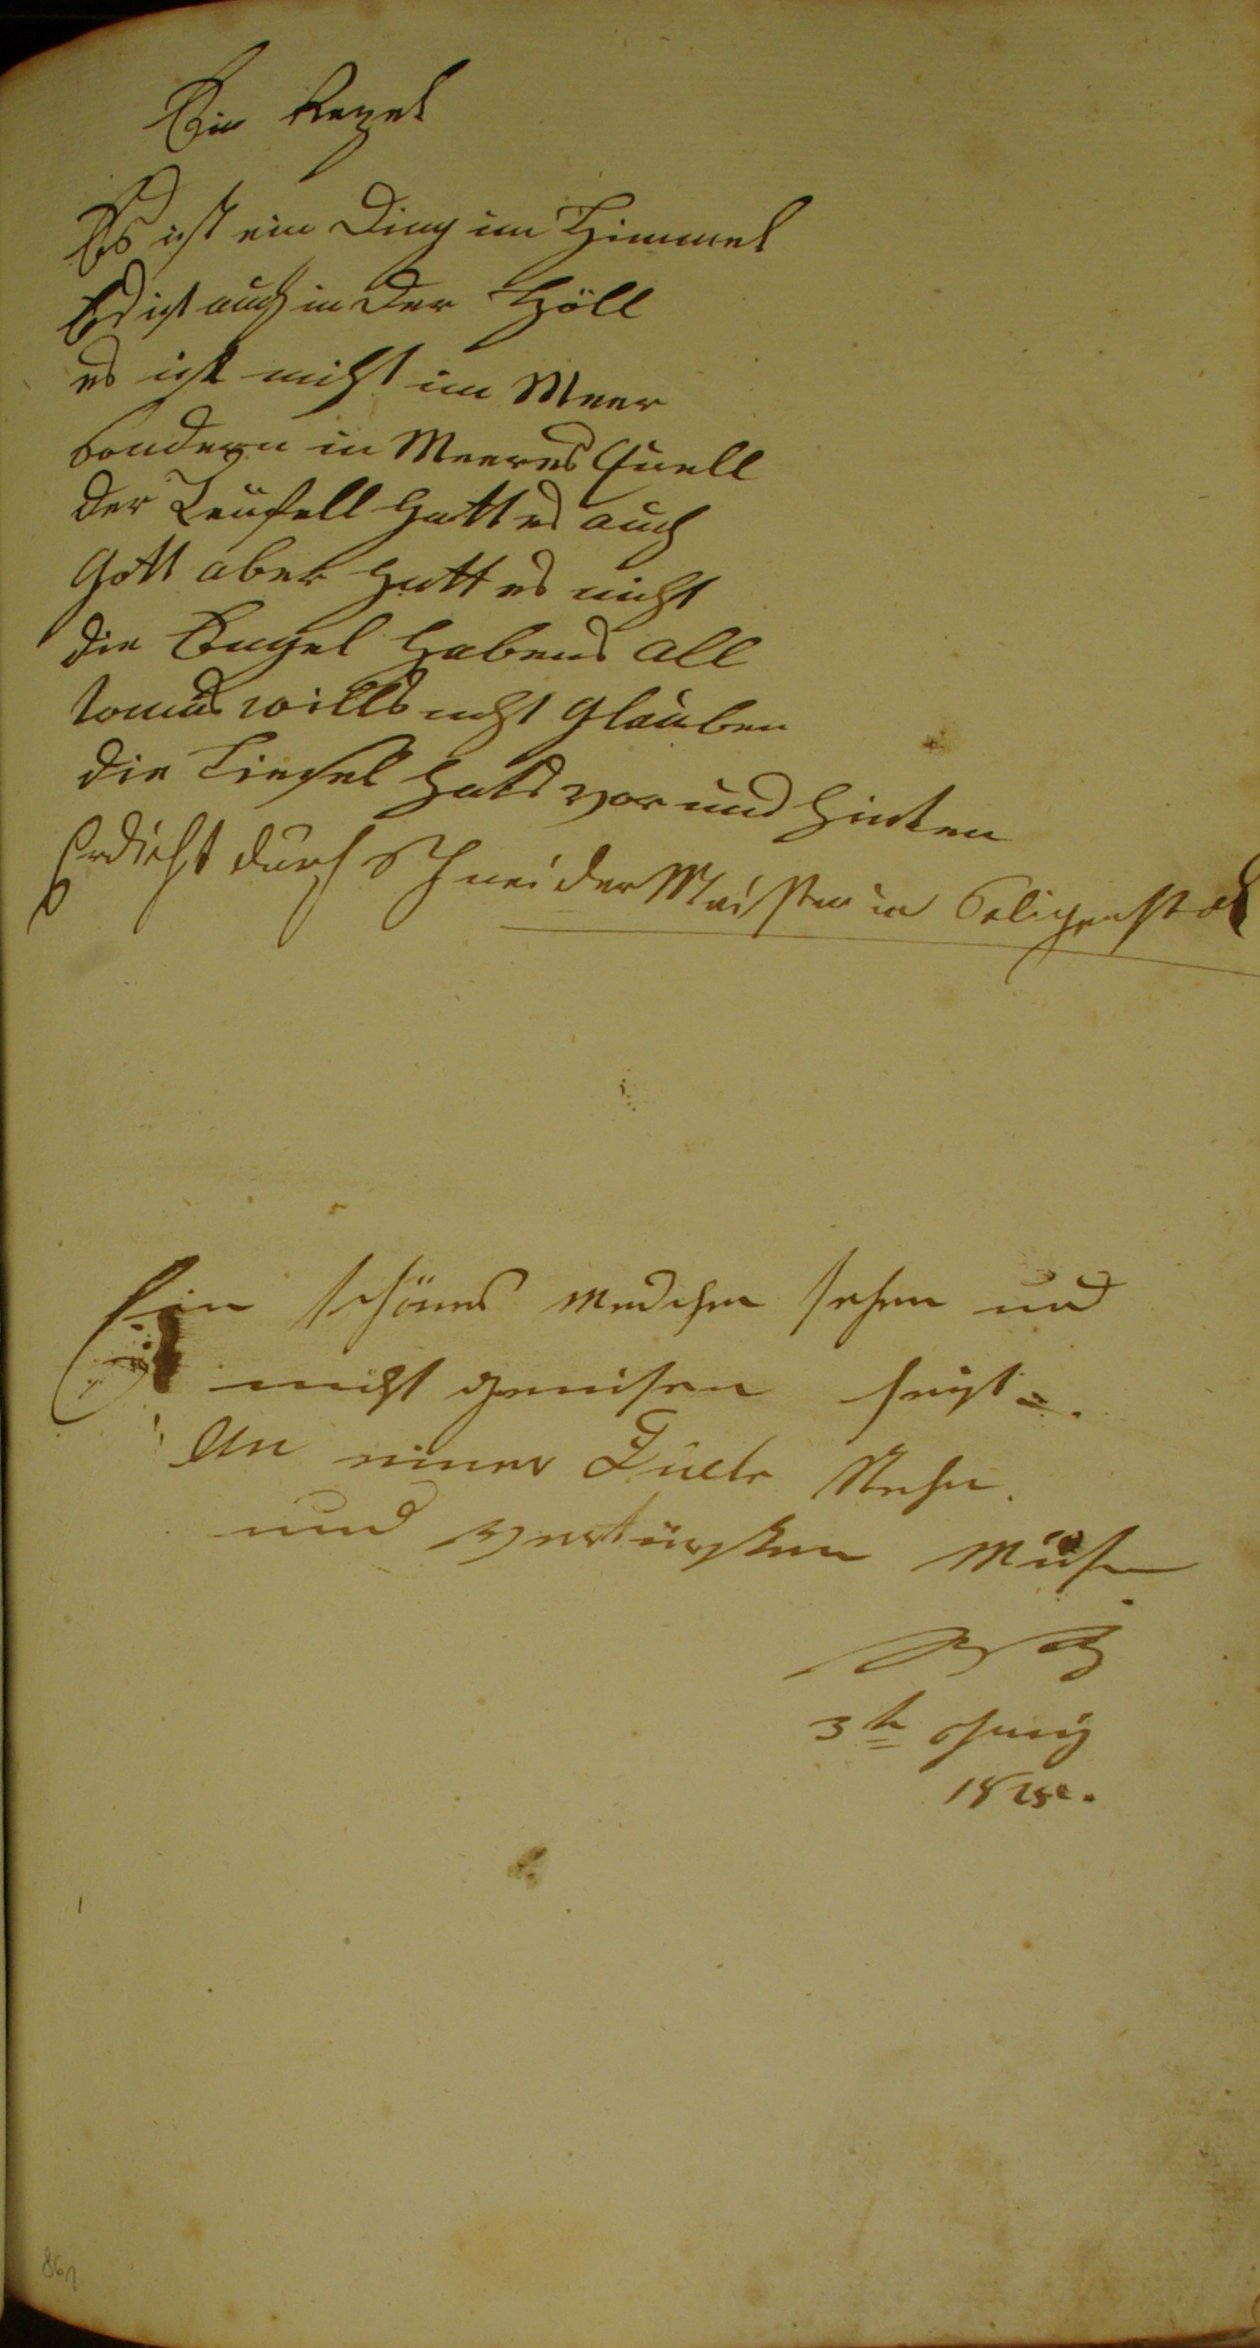 Ein Rezel
Es ist ein Ding im Himmel
Es ist auch in der Höll
es ist nicht im Meer
sondern in Meeres Quell
der Teüfell hatt es auch
Gott aber hatt es nicht
die Engel habens all
tomas wills nicht glauben
die Liesel hats vor und hinten
Erdicht durch Schneider Meister in Seligenstat
Ein schönes Medchen sehen und
nicht genisen heist
An einer Quele stehn
und vertürsten Müsen
3te Juny